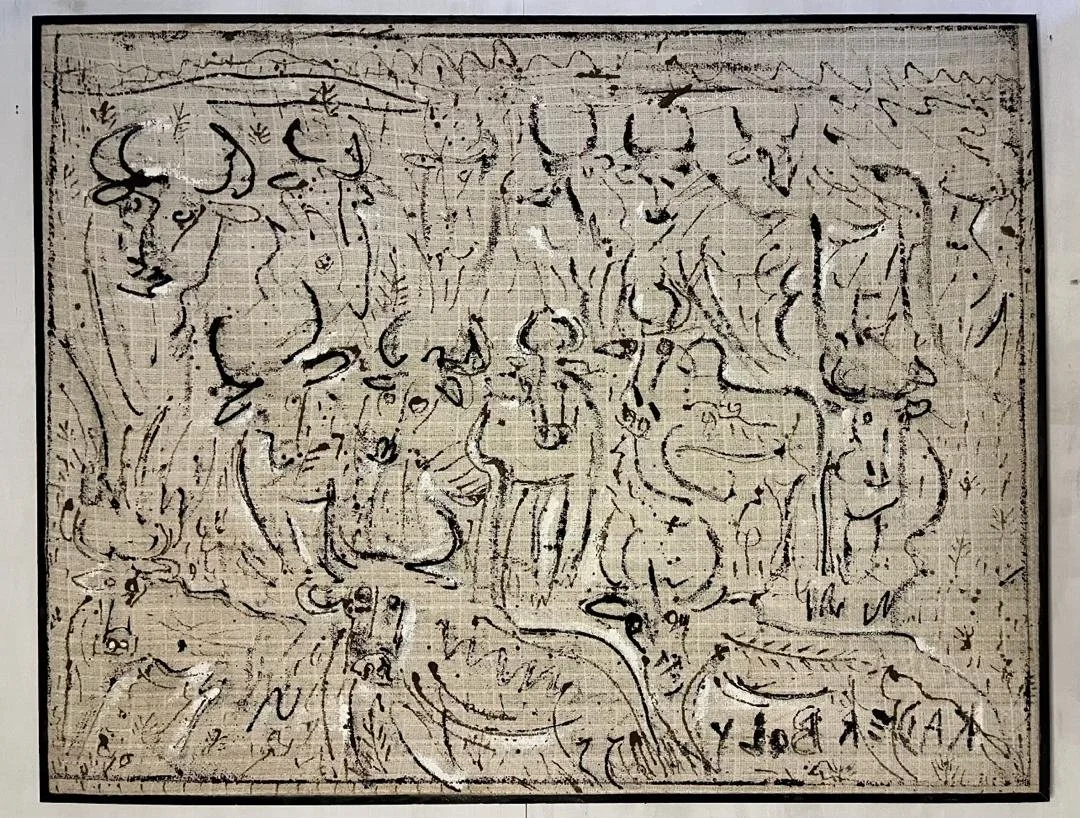 KADER BoLY